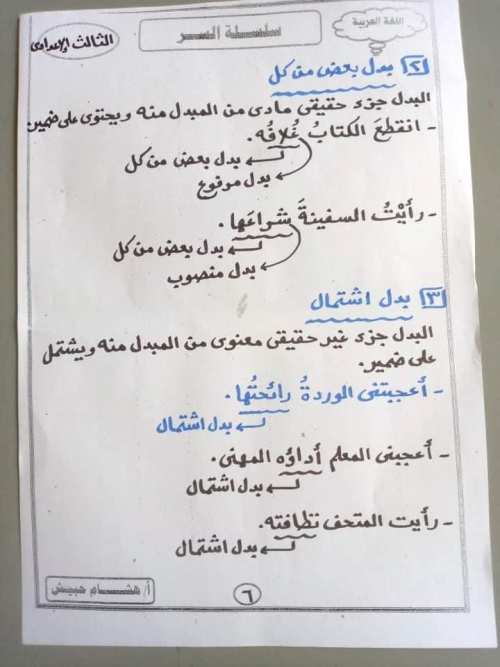 اللغة العربية
سلسلة السر
الثالث الإعدادى
٢ بدل بعض من كل
البدل جزء حقيقى مادى من المبدل منه ويحتوى على ضمير
- انقطعَ الكتابُ غُلافُه.
بدل بعض من كل
بدل مرفوع
- رأيْتُ السفينةَ شراعَها.
بدل بعض من كل
بدل منصوب
٣ بدل اشتمال
البدل جزء غير حقيقى معنوى من المبدل منه ويشتمل
على ضمير.
- أعجبتنى الوردةُ رائحتُها.
بدل اشتمال
- أعجبنى المعلم أداؤه المهنى.
بدل اشتمال
- رأيت المتحف نظافته.
بدل اشتمال
أ/ هشام حبيش
٦